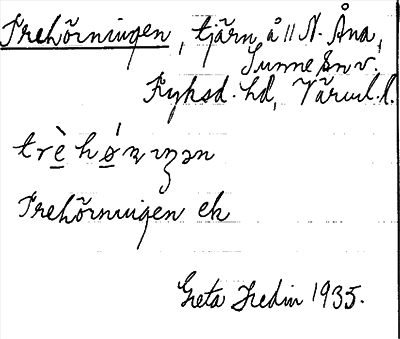 Trehörningen, tjärn å // N. Åna,
Sunne sn v.
Fryksd. hd, Värml. l.
trè̱ hǿ̱ṇıŋən
Trehörningen ek
Greta Hedin 1935.